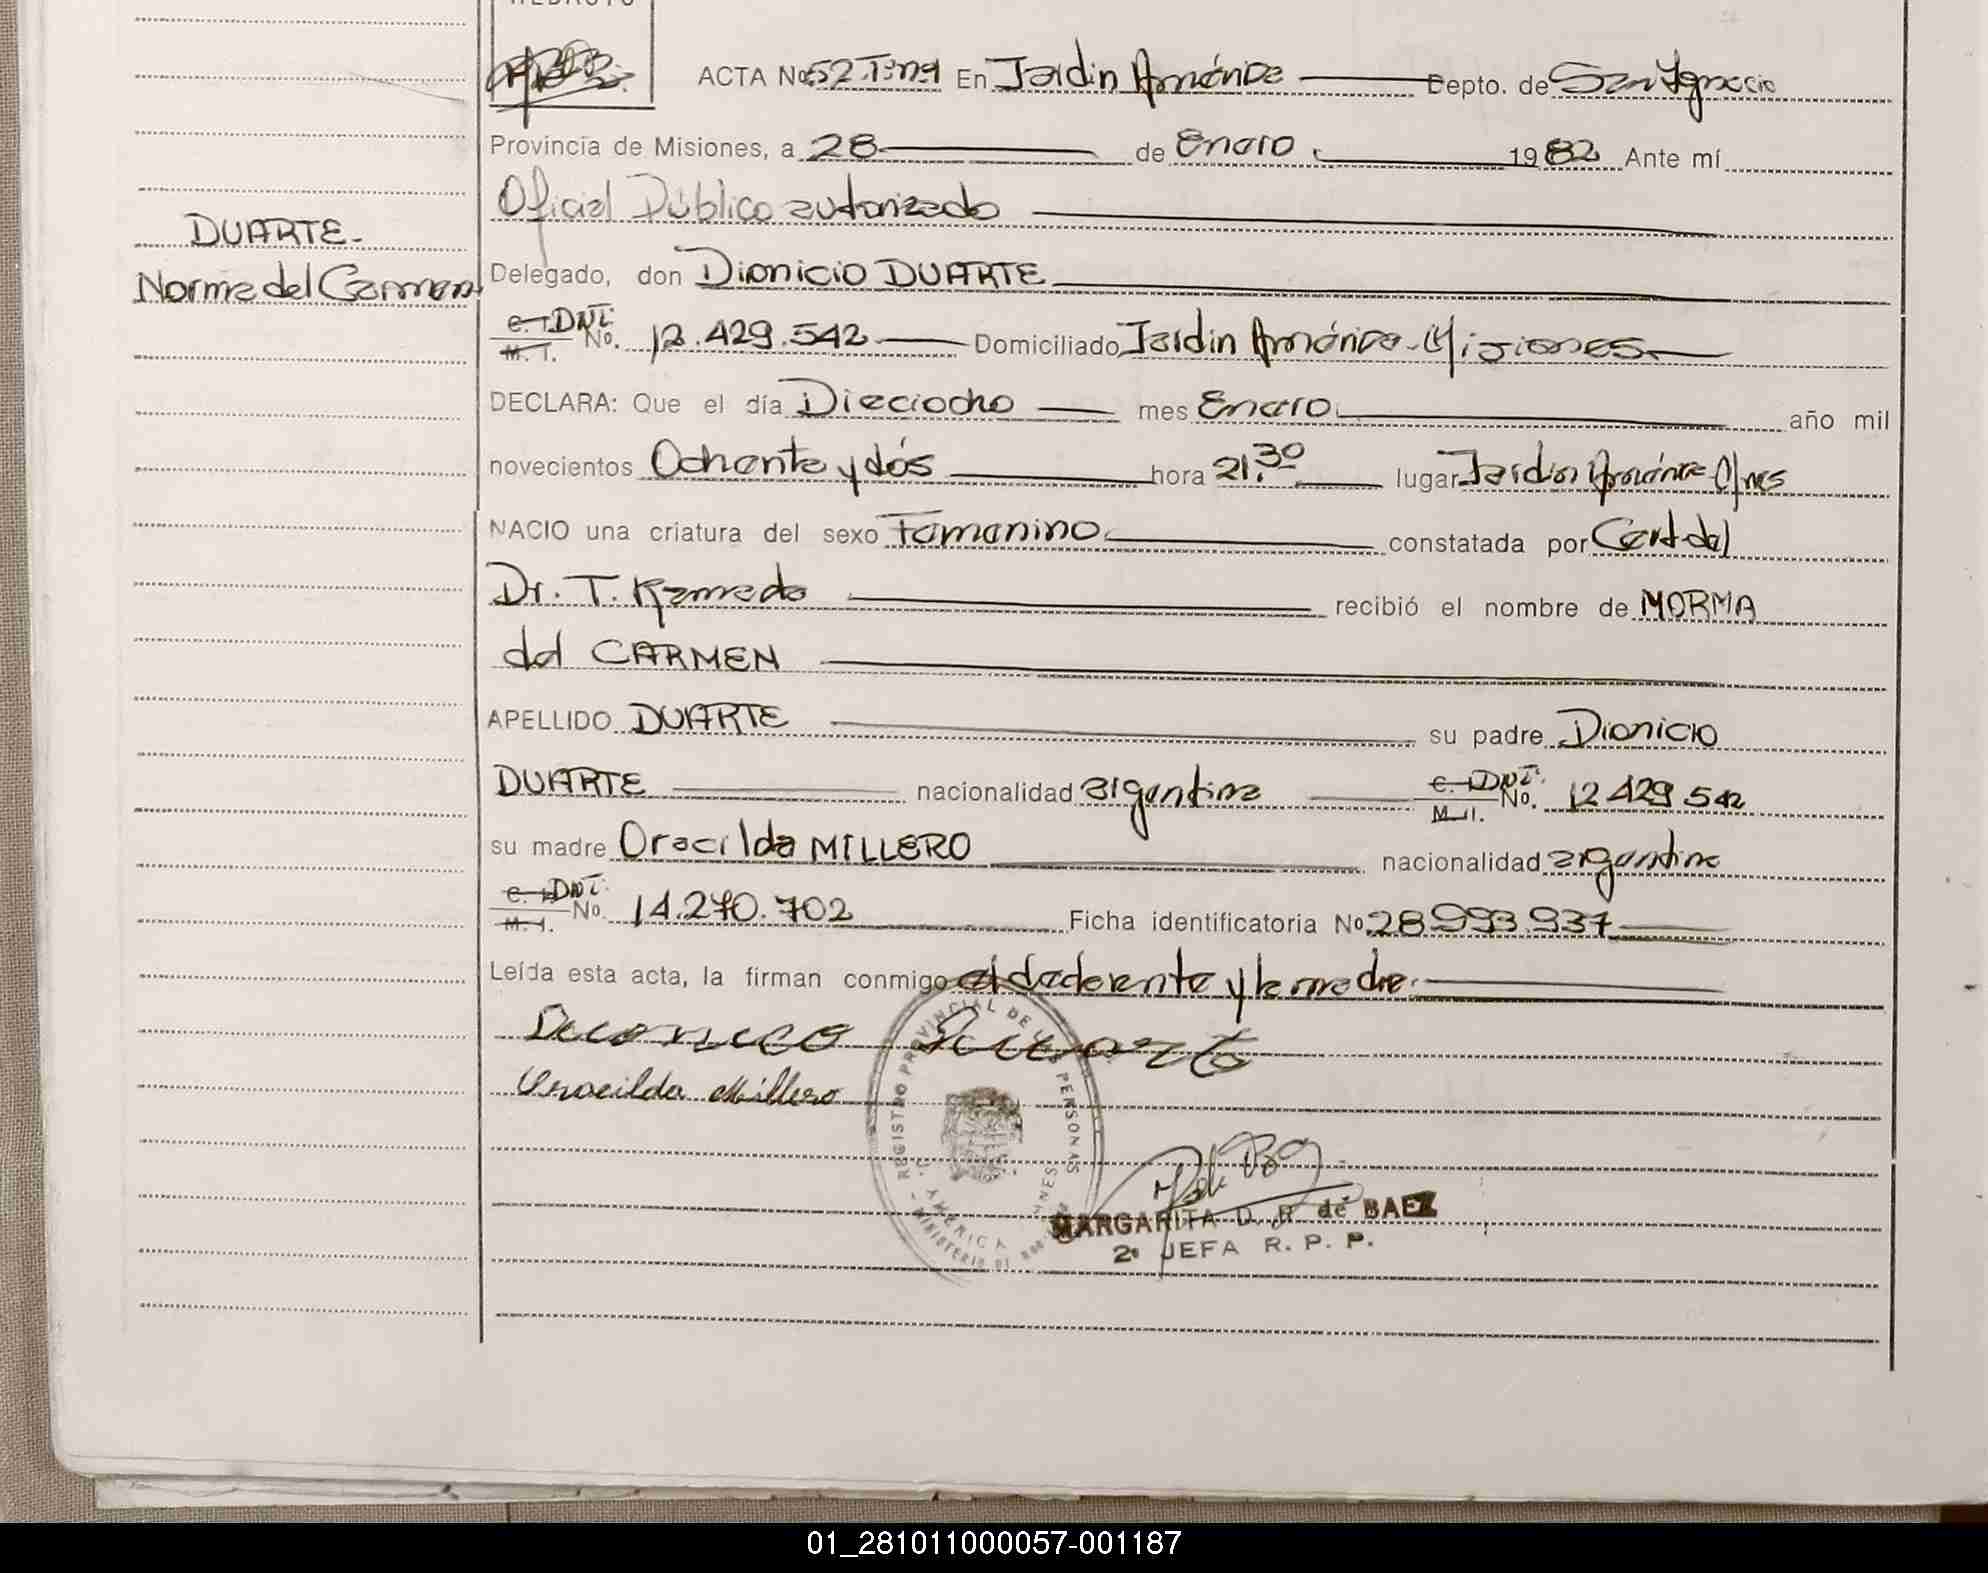 ACTA No. 52 Tº 1º En Jardin América Depto. de San Ignacio
Provincia de Misiones, a 28 de Enero 1982 Ante mí
Oficial Público autorizado
DUARTE-
Norma del Carmen
Delegado, don Dionicio DUARTE
C. I. DNI. M. I. No. 12.429.542 Domiciliado Jardin América-Misiones
DECLARA: Que el día Dieciocho mes Enero año mil
novecientos Ochenta y dós hora 21.30 lugar Jardin América Mnes
NACIO una criatura del sexo Femenino constatada por Cert. del
Dr. T. recibió el nombre de NORMA
del CARMEN
APELLIDO DUARTE su padre Dionicio
DUARTE nacionalidad argentina C. I. DNI. M. I. No. 12 429 542
su madre Oracilda MILLERO nacionalidad argentina
C. I. DNI. M. I. No. 14.270.702 Ficha identificatoria No. 28.993.937
Leída esta acta, la firman conmigo el declarante y la madre.
Dionicio Duarte
Oracilda Millero
REGISTRO PROVINCIAL DE LAS PERSONAS
J. AMERICA MNES
MINISTERIO DE
MARGARITA D. R. de BAEZ
2º JEFA R. P. P.
01_281011000057-001187